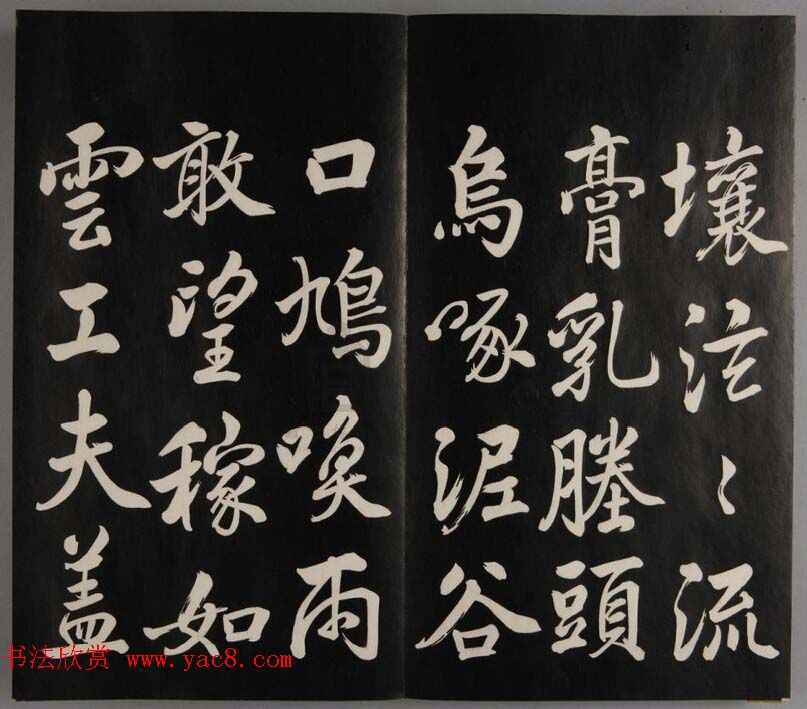 壤泣〻流
膏乳塍頭
烏啄泥谷
口鳩喚雨
敢望稼如
雲工夫盖
书法欣赏 www.yac8.com